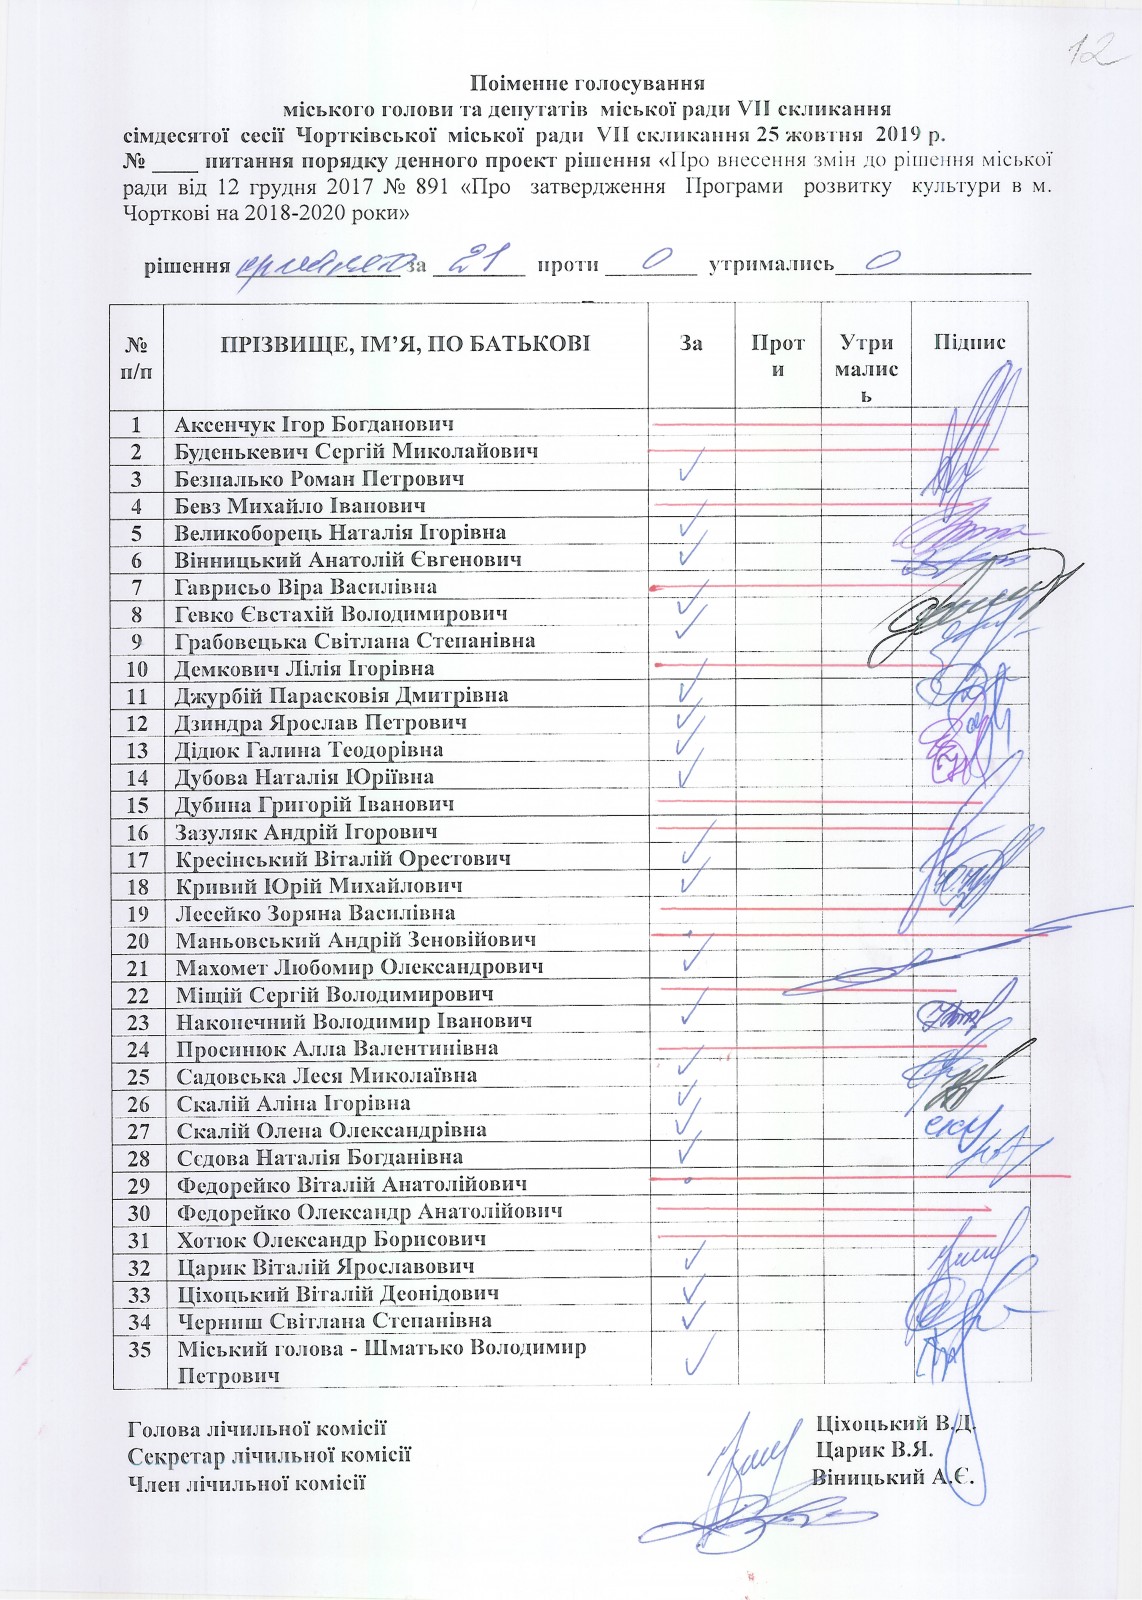 12
Поіменне голосування
міського голови та депутатів міської ради VII скликання
сімдесятої сесії Чортківської міської ради VII скликання 25 жовтня 2019 р.
№ ____ питання порядку денного проект рішення «Про внесення змін до рішення міської
ради від 12 грудня 2017 № 891 «Про затвердження Програми розвитку культури в м.
Чорткові на 2018-2020 роки»
рішення прийнято за 21 проти 0 утримались 0
№ п/п ПРІЗВИЩЕ, ІМ’Я, ПО БАТЬКОВІ За Проти Утрималис ь Підпис
1 Аксенчук Ігор Богданович
2 Буденькевич Сергій Миколайович
3 Безпалько Роман Петрович ✓
4 Бевз Михайло Іванович
5 Великоборець Наталія Ігорівна ✓
6 Вінницький Анатолій Євгенович ✓
7 Гаврисьо Віра Василівна
8 Гевко Євстахій Володимирович ✓
9 Грабовецька Світлана Степанівна ✓
10 Демкович Лілія Ігорівна
11 Джурбій Парасковія Дмитрівна ✓
12 Дзиндра Ярослав Петрович ✓
13 Дідюк Галина Теодорівна ✓
14 Дубова Наталія Юріївна ✓
15 Дубина Григорій Іванович
16 Зазуляк Андрій Ігорович
17 Кресінський Віталій Орестович ✓
18 Кривий Юрій Михайлович ✓
19 Лесейко Зоряна Василівна
20 Маньовський Андрій Зеновійович
21 Махомет Любомир Олександрович ✓
22 Міщій Сергій Володимирович
23 Наконечний Володимир Іванович ✓
24 Просинюк Алла Валентинівна
25 Садовська Леся Миколаївна ✓
26 Скалій Аліна Ігорівна ✓
27 Скалій Олена Олександрівна ✓
28 Сєдова Наталія Богданівна ✓
29 Федорейко Віталій Анатолійович
30 Федорейко Олександр Анатолійович
31 Хотюк Олександр Борисович
32 Царик Віталій Ярославович ✓
33 Ціхоцький Віталій Деонідович ✓
34 Черниш Світлана Степанівна ✓
35 Міський голова - Шматько Володимир ✓
Петрович
Голова лічильної комісії Ціхоцький В.Д.
Секретар лічильної комісії Царик В.Я.
Член лічильної комісії Віницький А.Є.